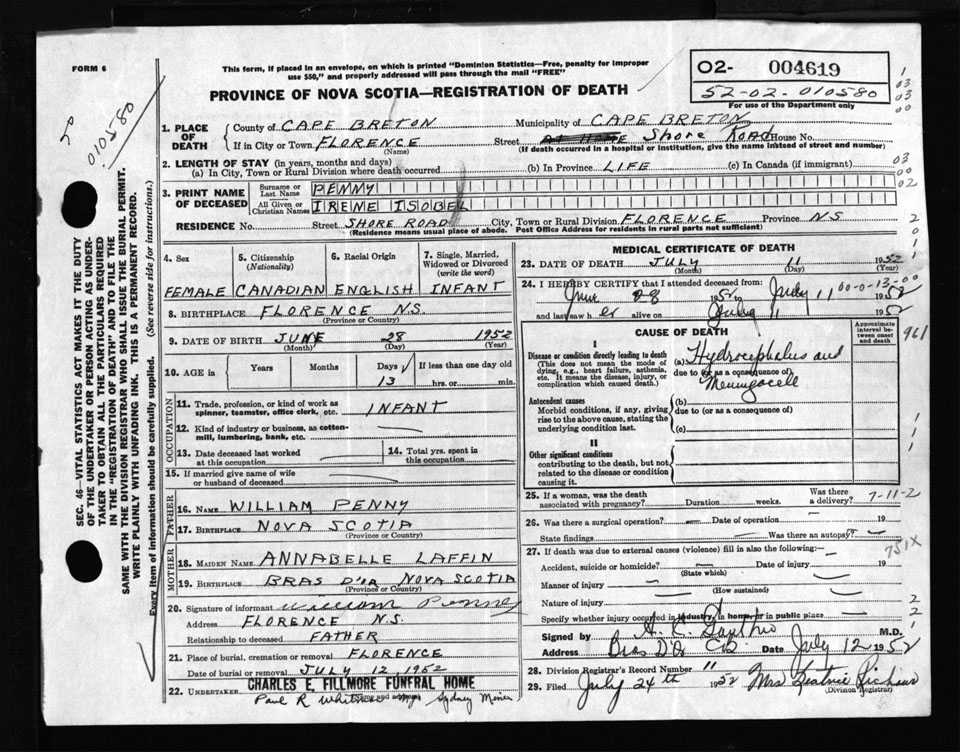 FORM 6
This form, if placed in an envelope, on which is printed "Dominion Statistics—Free, penalty for improper
use $50," and properly addressed will pass through the mail "FREE"
PROVINCE OF NOVA SCOTIA—REGISTRATION OF DEATH
02- 004619
52-02-010580
For use of the Department only
010580
1. PLACE OF DEATH
County of CAPE BRETON Municipality of CAPE BRETON
If in City or Town FLORENCE Street AT HOME Shore ROAD House No.
(Name) (If death occurred in a hospital or institution, give the name instead of street and number)
2. LENGTH OF STAY (in years, months and days)
(a) In City, Town or Rural Division where death occurred (b) In Province LIFE (c) In Canada (if immigrant)
3. PRINT NAME OF DECEASED
Surname or Last Name PENNY
All Given or Christian Names IRENE ISOBEL
RESIDENCE No. Street SHORE ROAD City, Town or Rural Division FLORENCE Province N.S
(Residence means usual place of abode. Post Office Address for residents in rural parts not sufficient)
4. Sex FEMALE
5. Citizenship (Nationality) CANADIAN
6. Racial Origin ENGLISH
7. Single, Married, Widowed or Divorced (write the word) INFANT
8. BIRTHPLACE FLORENCE N.S.
(Province or Country)
9. DATE OF BIRTH JUNE 28 1952
(Month) (Day) (Year)
10. AGE in Years Months Days 13 If less than one day old hrs. or min.
OCCUPATION
11. Trade, profession, or kind of work as spinner, teamster, office clerk, etc. INFANT
12. Kind of industry or business, as cotton-mill, lumbering, bank, etc.
13. Date deceased last worked at this occupation
14. Total yrs. spent in this occupation
15. If married give name of wife or husband of deceased
FATHER
16. Name WILLIAM PENNY
17. Birthplace NOVA SCOTIA
(Province or Country)
MOTHER
18. Maiden Name ANNABELLE LAFFIN
19. Birthplace BRAS D'OR NOVA SCOTIA
(Province or Country)
20. Signature of informant William Penney
Address FLORENCE N.S.
Relationship to deceased FATHER
21. Place of burial, cremation or removal FLORENCE
Date of burial or removal JULY 12, 1952
22. UNDERTAKER CHARLES E. FILLMORE FUNERAL HOME
Paul R Sydney Mines
MEDICAL CERTIFICATE OF DEATH
23. DATE OF DEATH JULY 11 1952
(Month) (Day) (Year)
00-0-13-00
24. I HEREBY CERTIFY that I attended deceased from:
June 28 1952 to July 11 1952
and last saw her alive on July 11 1952
CAUSE OF DEATH
Approximate interval between onset and death
961
I
Disease or condition directly leading to death
(This does not mean the mode of dying, e.g., heart failure, asthenia, etc. It means the disease, injury, or complication which caused death.)
(a) Hydrocephalus and
due to (or as a consequence of)
Meningocele
Antecedent causes
Morbid conditions, if any, giving rise to the above cause, stating the underlying condition last.
(b)
due to (or as a consequence of)
(c)
II
Other significant conditions
contributing to the death, but not related to the disease or condition causing it.
25. If a woman, was the death associated with pregnancy? Duration weeks. Was there a delivery? 7-11-2
26. Was there a surgical operation? Date of operation 19
State findings Was there an autopsy?
27. If death was due to external causes (violence) fill in also the following:
751X
Accident, suicide or homicide? Date of injury 19
(State which)
Manner of injury
(How sustained)
Nature of injury
Specify whether injury occurred in industry, in home, or in public place
Signed by M.D.
Address Bras D'Or CB Date July 12 1952
28. Division Registrar's Record Number 11
29. Filed July 24th 1952 Mrs Beatrice
(Division Registrar)
SEC. 46—VITAL STATISTICS ACT MAKES IT THE DUTY
OF THE UNDERTAKER OR PERSON ACTING AS UNDER-
TAKER TO OBTAIN ALL THE PARTICULARS REQUIRED
IN THE "REGISTRATION OF DEATH" AND TO FILE THE
SAME WITH THE DIVISION REGISTRAR WHO SHALL ISSUE THE BURIAL PERMIT.
WRITE PLAINLY WITH UNFADING INK. THIS IS A PERMANENT RECORD.
Every item of information should be carefully supplied. (See reverse side for instructions.)